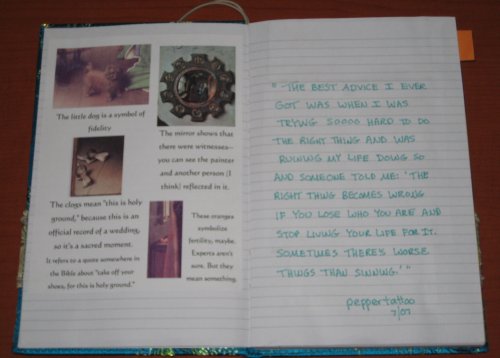 The little dog is a symbol of
fidelity
The mirror shows that
there were witnesses--
you can see the painter
and another person (I
think) reflected in it.
The clogs mean "this is holy
ground," because this is an
official record of a wedding,
so it's a sacred moment.
It refers to a quote somewhere in
the Bible about "take off your
shoes, for this is holy ground."
These oranges
symbolize
fertility, maybe.
Experts aren't
sure. But they
mean something.
"THE BEST ADVICE I EVER
GOT WAS WHEN I WAS
TRYING SOOOO HARD TO DO
THE RIGHT THING AND WAS
RUINING MY LIFE DOING SO
AND SOMEONE TOLD ME: 'THE
RIGHT THING BECOMES WRONG
IF YOU LOSE WHO YOU ARE AND
STOP LIVING YOUR LIFE FOR IT.
SOMETIMES THERE'S WORSE
THINGS THAN SINNING.'"
peppertattoo
7/07